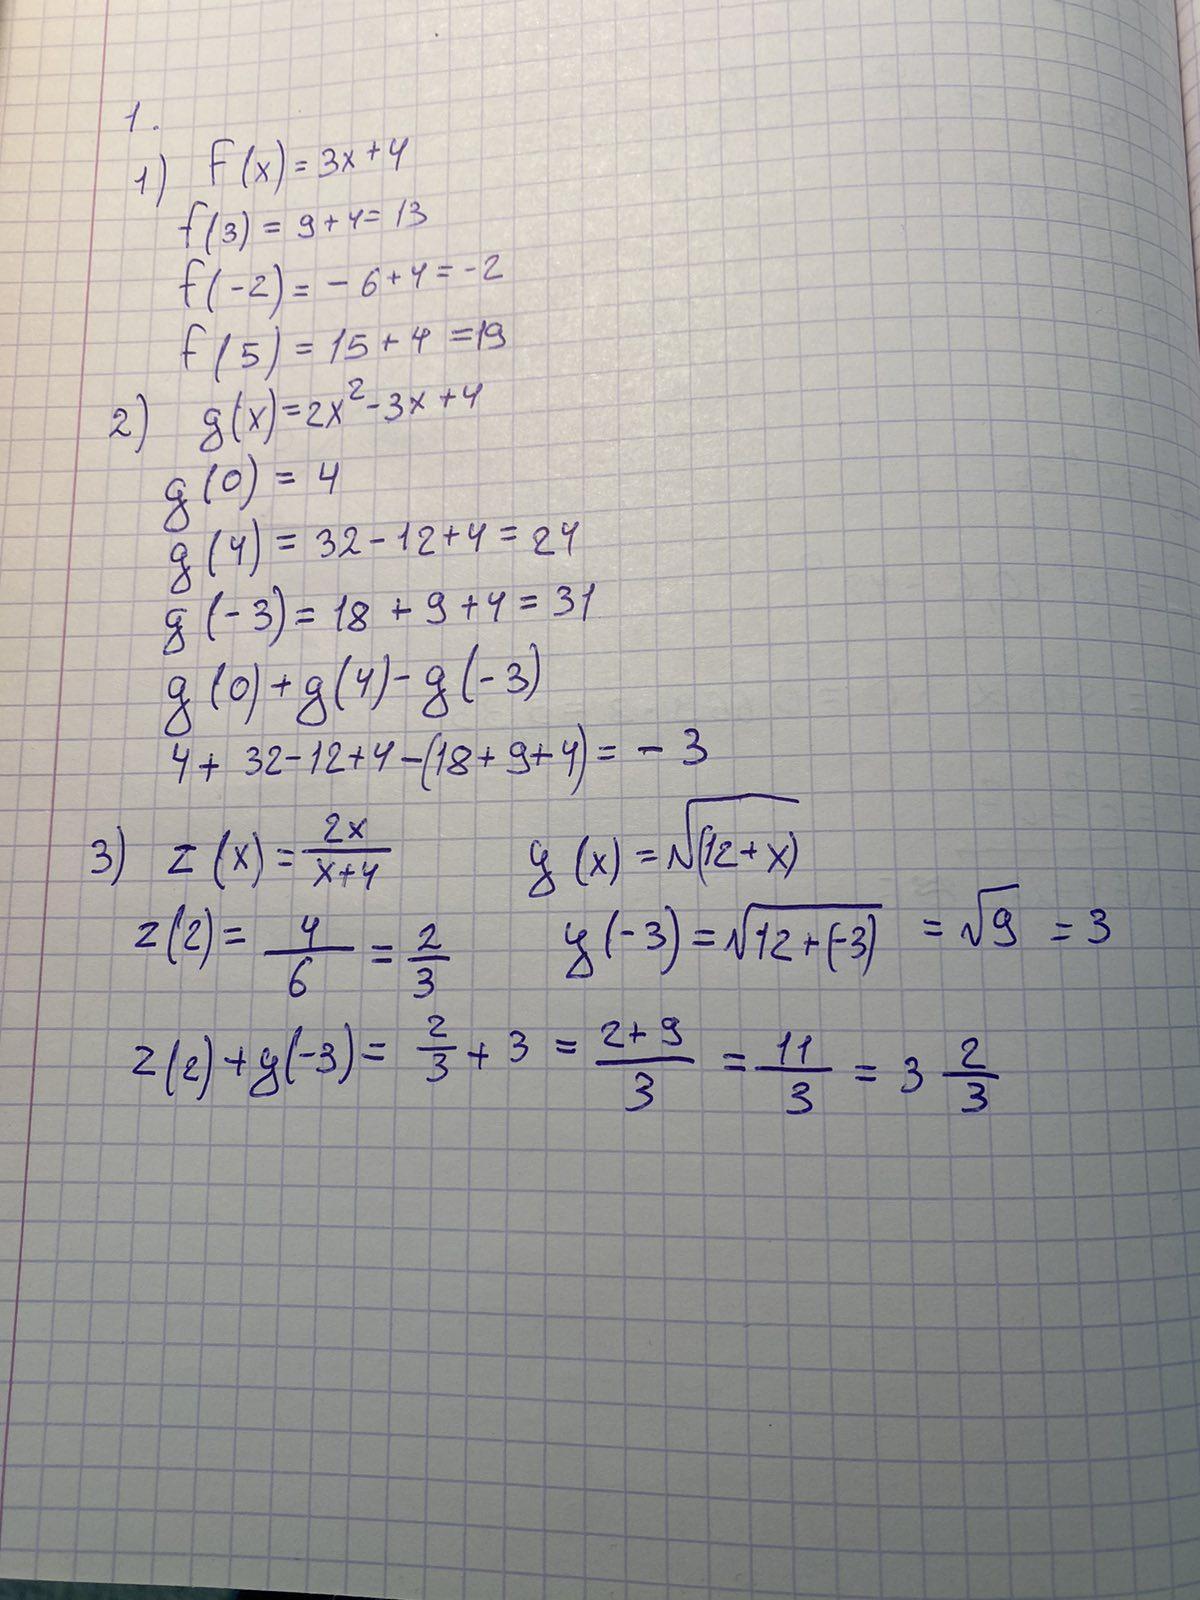 1.
1) f(x) = 3x + 4
f(3) = 9 + 4 = 13
f(-2) = - 6 + 4 = -2
f(5) = 15 + 4 = 19
2) g(x) = 2x² - 3x + 4
g(0) = 4
g(4) = 32 - 12 + 4 = 24
g(-3) = 18 + 9 + 4 = 31
g(0) + g(4) - g(-3)
4 + 32 - 12 + 4 - (18 + 9 + 4) = - 3
3) z(x) = 2x/(x+4) y(x) = √(12 + x)
z(2) = 4/6 = 2/3 y(-3) = √12 + (-3) = √9 = 3
z(2) + y(-3) = 2/3 + 3 = (2 + 9)/3 = 11/3 = 3 2/3